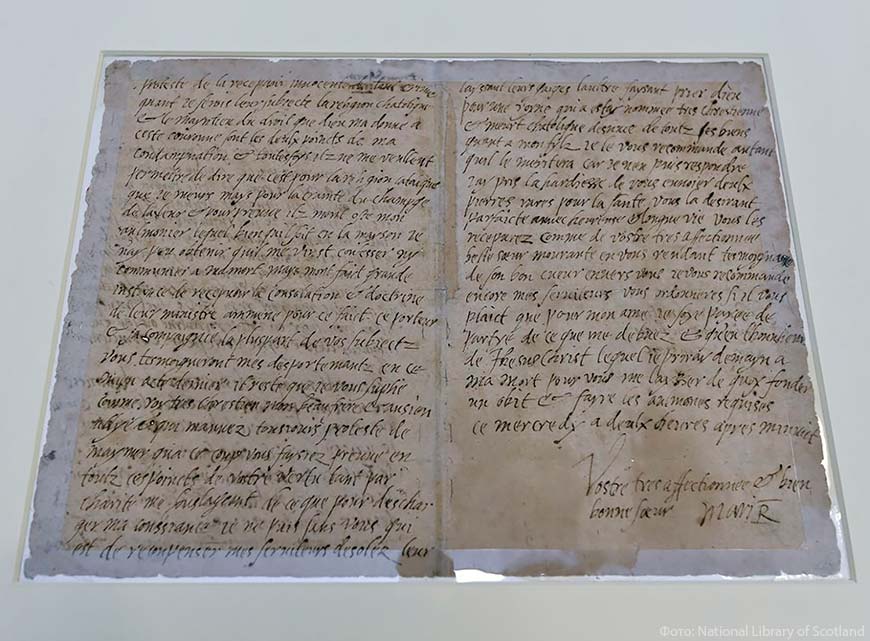 proteste de la recepuoir innocente de tout crime
quant je serois leur subiecte la religion chatolique
& le mayntien du droit que dieu ma donne a
ceste couronne sont les deulx points de ma
condampnation & toutesfoys ilz ne me veulent
permettre de dire que cest pour la religion catolique
que ie meurs mays pour la crainte du champge
de la leur & pour preuue ilz mont oste mon
aulmonier lequel bien quil soit en la mayson ie
nay peu obtenir quil me vinst confesser ny
communier a ma mort mays mont faict grande
instance de recepuoir la consolation & doctrine
de leur ministre ammene pour ce faict ce porteur
& sa compaignie la pluspart de vos subiectz
vous tesmoigneront mes desportemantz en ce
mien acte dernier il reste que ie vous suplie
comme roy tres chrestien mon beau frere & ansien
allye & qui mauuez tousiours proteste de
maymer qua ce coup vous faysiez preuue en
toutz ces points de vostre vertu tant par
charite me soulageant de ce que pour deschar
ger ma conssiance ie ne puis sans vous qui
est de recompenser mes seruiteurs desolez leur
layssant leurs gaiges laultre faysant prier dieu
pour une royne qui a estay nommee tres chrestienne
& meurt chatolique desnuee de toutz ses biens
quant a mon filz ie le vous recommande autant
quil le meritera car ie nen puis respondre
Iay pris la hardiesse de vous enuoier deulx
pierres rares pour la sante vous la desirant
parfaicte auuec heureuse & longue vie Vous les
recepurez comme de vostre tres affectionnee
belle soeur mourante en vous rendant tesmoygnage
de son bon cueur enuers vous ie vous recommande
encore mes seruiteurs vous ordonneres si il vous
plaict que pour mon ame ie soye payee de
partye de ce que me debuez & quen lhonneur
de Jhesus Christ lequel ie priray demayn a
ma mort pour vous me laysser de quoy fonder
un obit & fayre les aulmones requises
ce mercredy a deulx heures apres minuict
Vostre tres affectionnee & bien
bonne soeur Mari R
Фото: National Library of Scotland